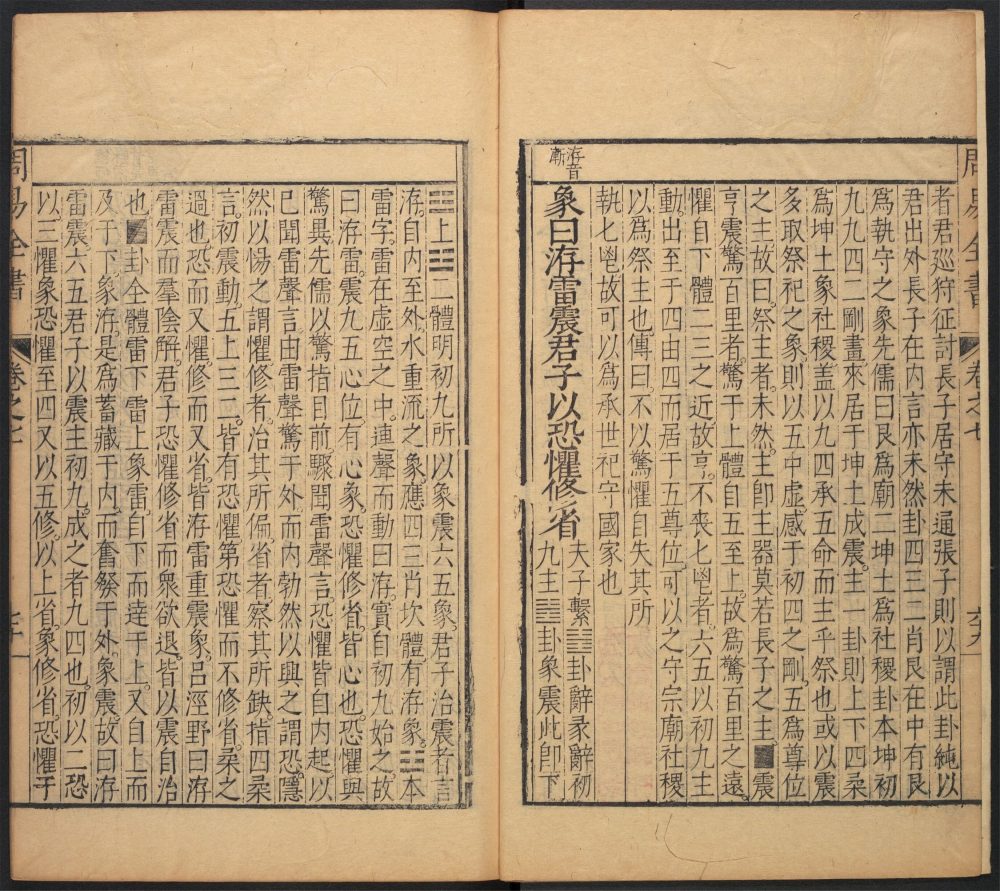 周易全書
卷之七
六九
者君巡狩征討長子居守未逼張子則以謂此卦純以
君出外長子在內言亦未然卦四三二肖艮在中有艮
爲執守之象先儒曰艮爲廟二坤土爲社稷卦本坤初
九九四二剛畫來居于坤土成震主一卦則上下四柔
爲坤土象社稷盖以九四承五命而主乎祭也或以震
多取祭祀之象則以五中虛感于初四之剛五爲尊位
之主故曰祭主者未然主卽主器莫若長子之主■震
亨震驚百里者驚于上體自五至上故爲驚百里之遠
懼自下體二三之近故亨不喪匕鬯者六五以初九主
動出至于四由四而居于五尊位可以之守宗廟社稷
以爲祭主也傳曰不以驚懼自失其所
執匕鬯故可以爲承世祀守國家也
洊音
漸
象曰洊雷震君子以恐懼修省
夫子繫☳☳卦辭彖辭初
九主☳☳卦象震此卽下
☳上☳二體明初九所以象震六五象君子治震者言
洊自內至外水重流之象應四三肖坎體有洊象☳本
雷字雷在虛空之中連聲而動曰洊實自初九始之故
曰洊雷震九五心位有心象恐懼修省皆心也恐懼與
驚異先儒以驚指目前驟聞雷聲言恐懼皆自內起以
已聞雷聲言由雷聲驚于外而內勃然以興之謂恐隱
然以惕之謂懼修者治其所偏省者察其所缺指四柔
言初震動五上三二皆有恐懼第恐懼而不修省柔之
過也恐而又懼修而又省皆洊雷重震象呂涇野曰洊
雷震而羣陰解君子恐懼修省而衆欲退皆以震自治
也■卦仝體雷下雷上象雷自下而達于上又自上而
及于下象洊是爲蓄藏于內而奮發于外象震故曰洊
雷震六五君子以震主初九成之者九四也初以二恐
以三懼象恐懼至四又以五修以上省象修省恐懼于
周易全書
卷之七
七十